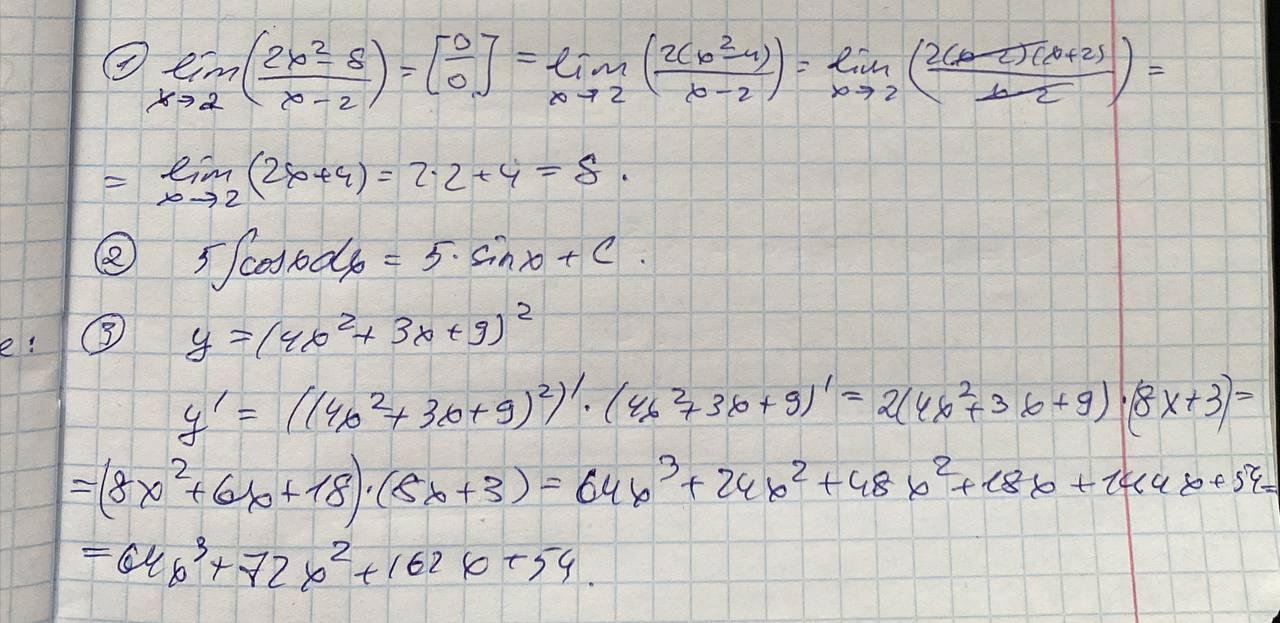 ① lim x→2 (2x²-8 / x-2) = [0/0] = lim x→2 (2(x²-4) / x-2) = lim x→2 (2(x-2)(x+2) / x-2) =
= lim x→2 (2x+4) = 2·2+4 = 8.
② 5∫cosxdx = 5·sinx + C.
e: ③ y = (4x²+3x+9)²
y' = ((4x²+3x+9)²)'·(4x²+3x+9)' = 2(4x²+3x+9)·(8x+3) =
= (8x²+6x+18)·(8x+3) = 64x³+24x²+48x²+18x+144x+54=
= 64x³+72x²+162x+54.